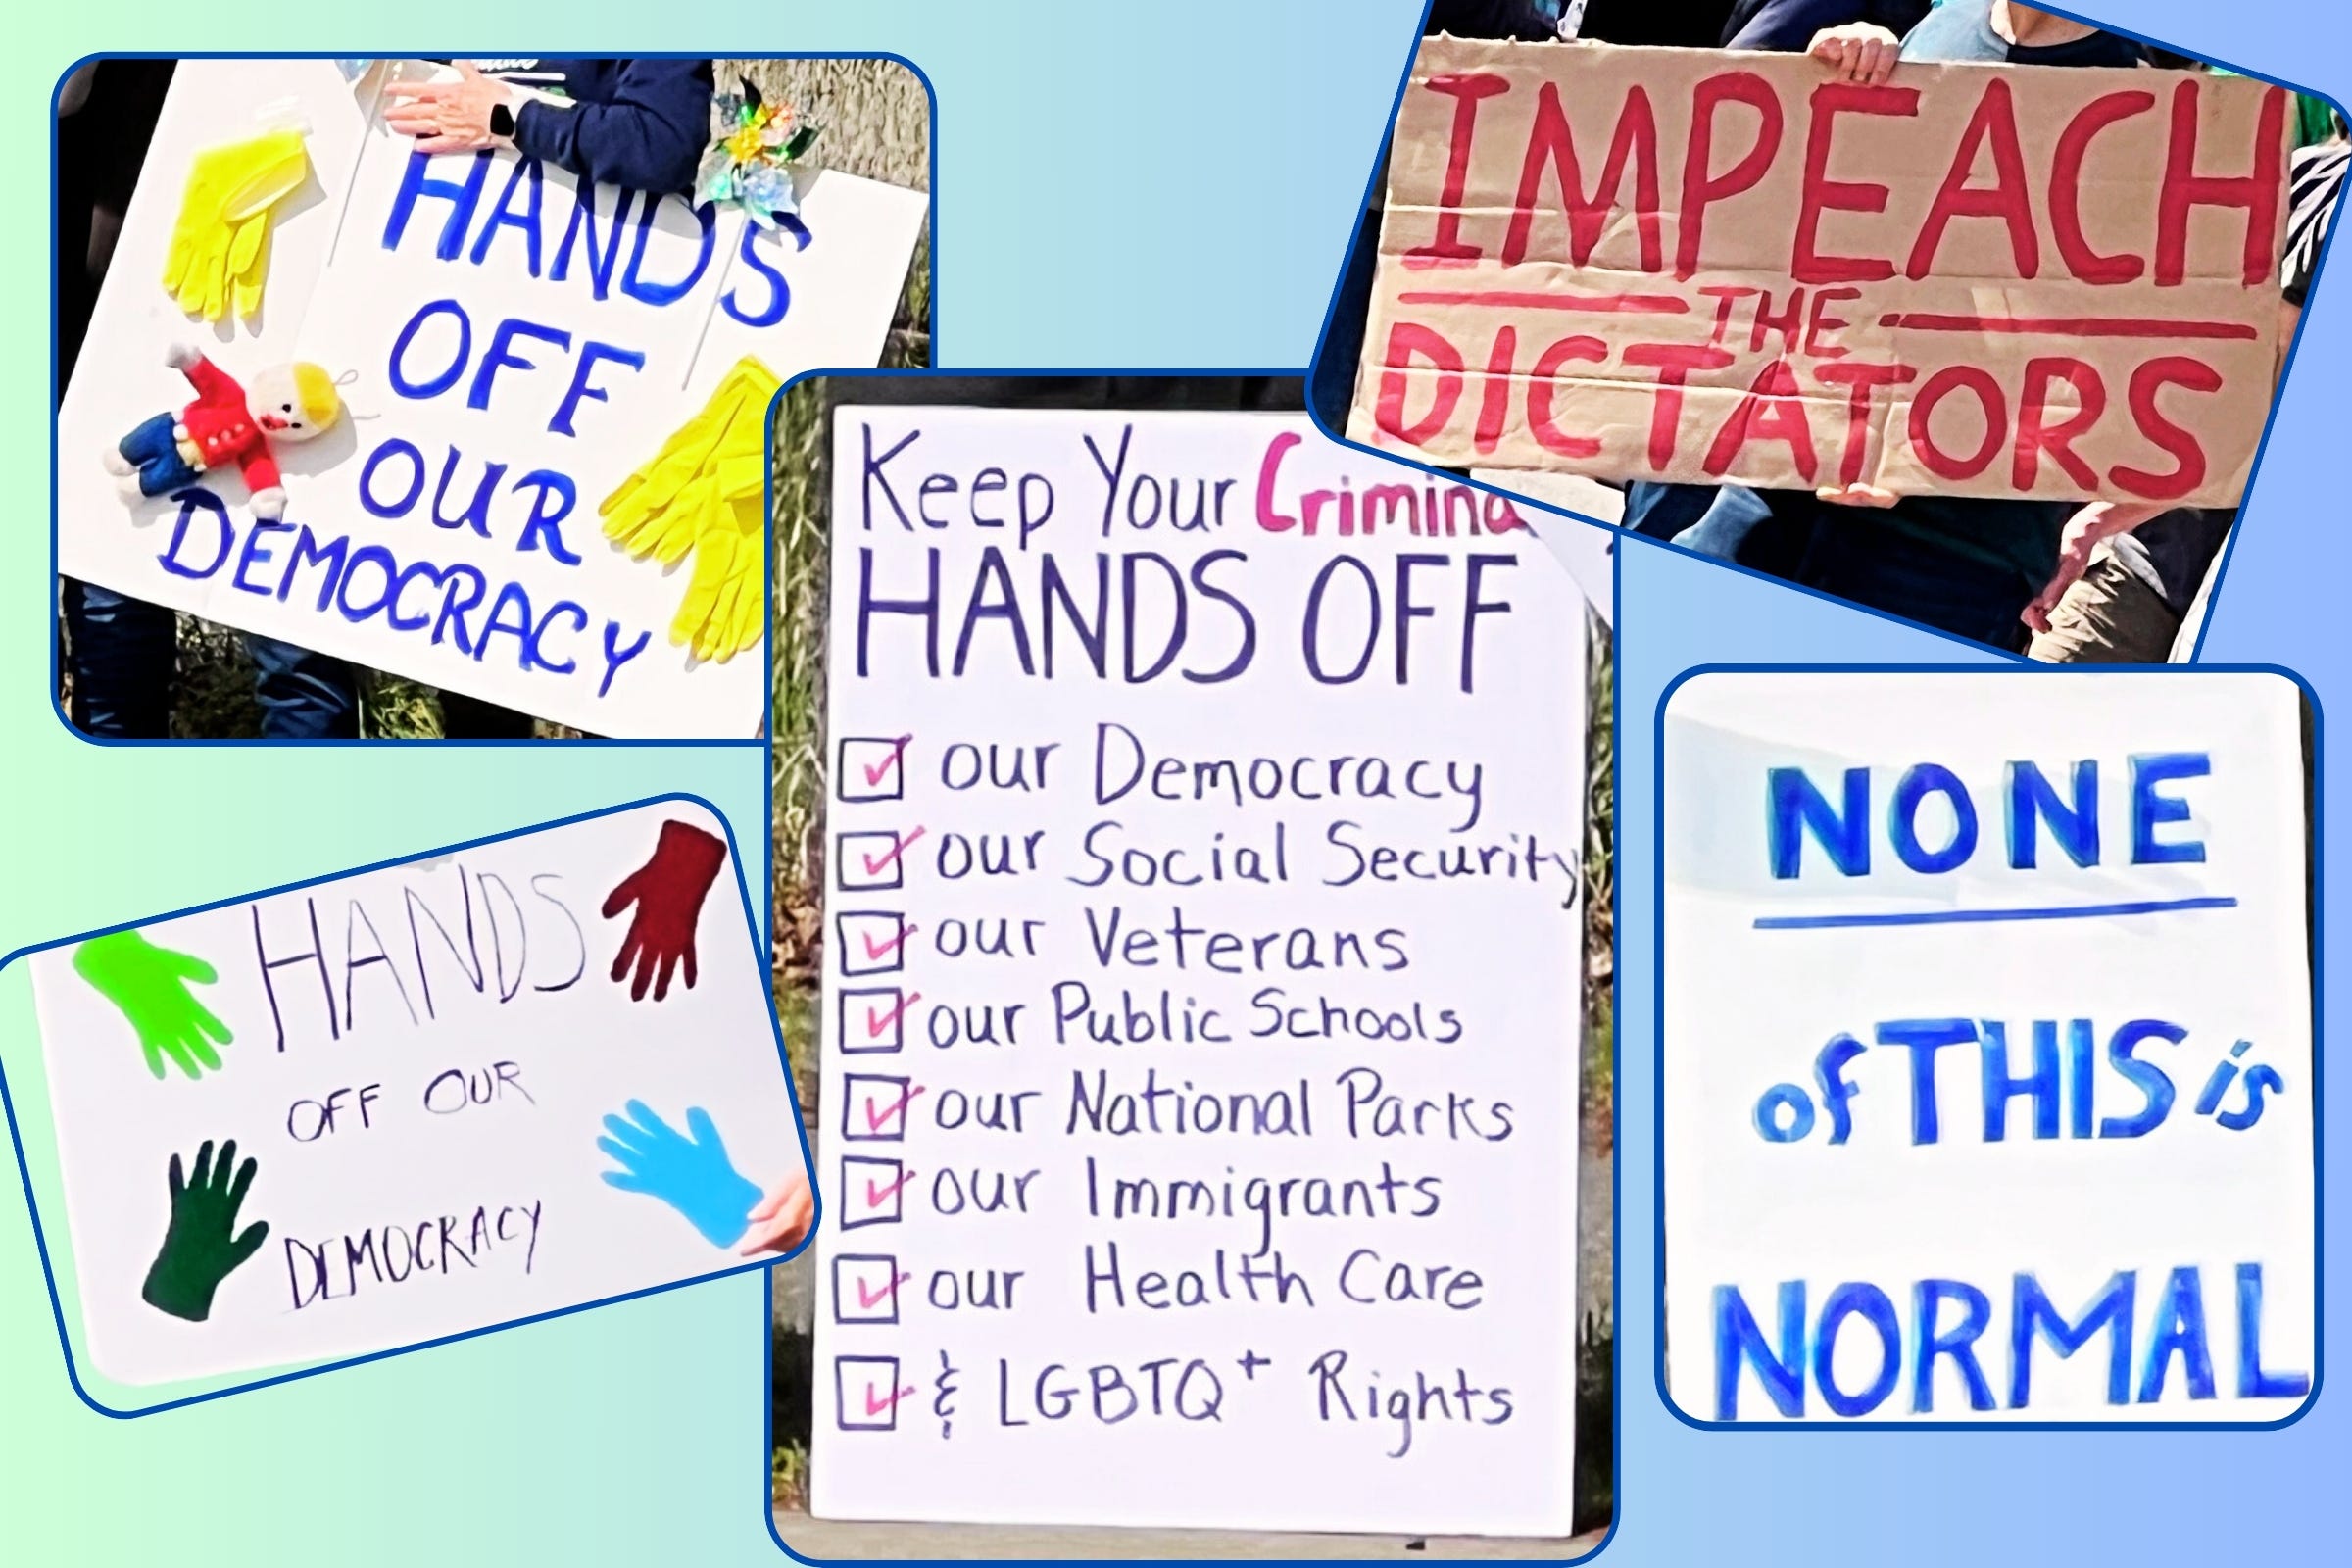 HANDS
OFF
OUR
DEMOCRACY
IMPEACH
THE
DICTATORS
Keep Your Crimina
HANDS OFF
our Democracy
our Social Security
our Veterans
our Public Schools
our National Parks
our Immigrants
our Health Care
& LGBTQ+ Rights
HANDS
OFF OUR
DEMOCRACY
NONE
of THIS is
NORMAL